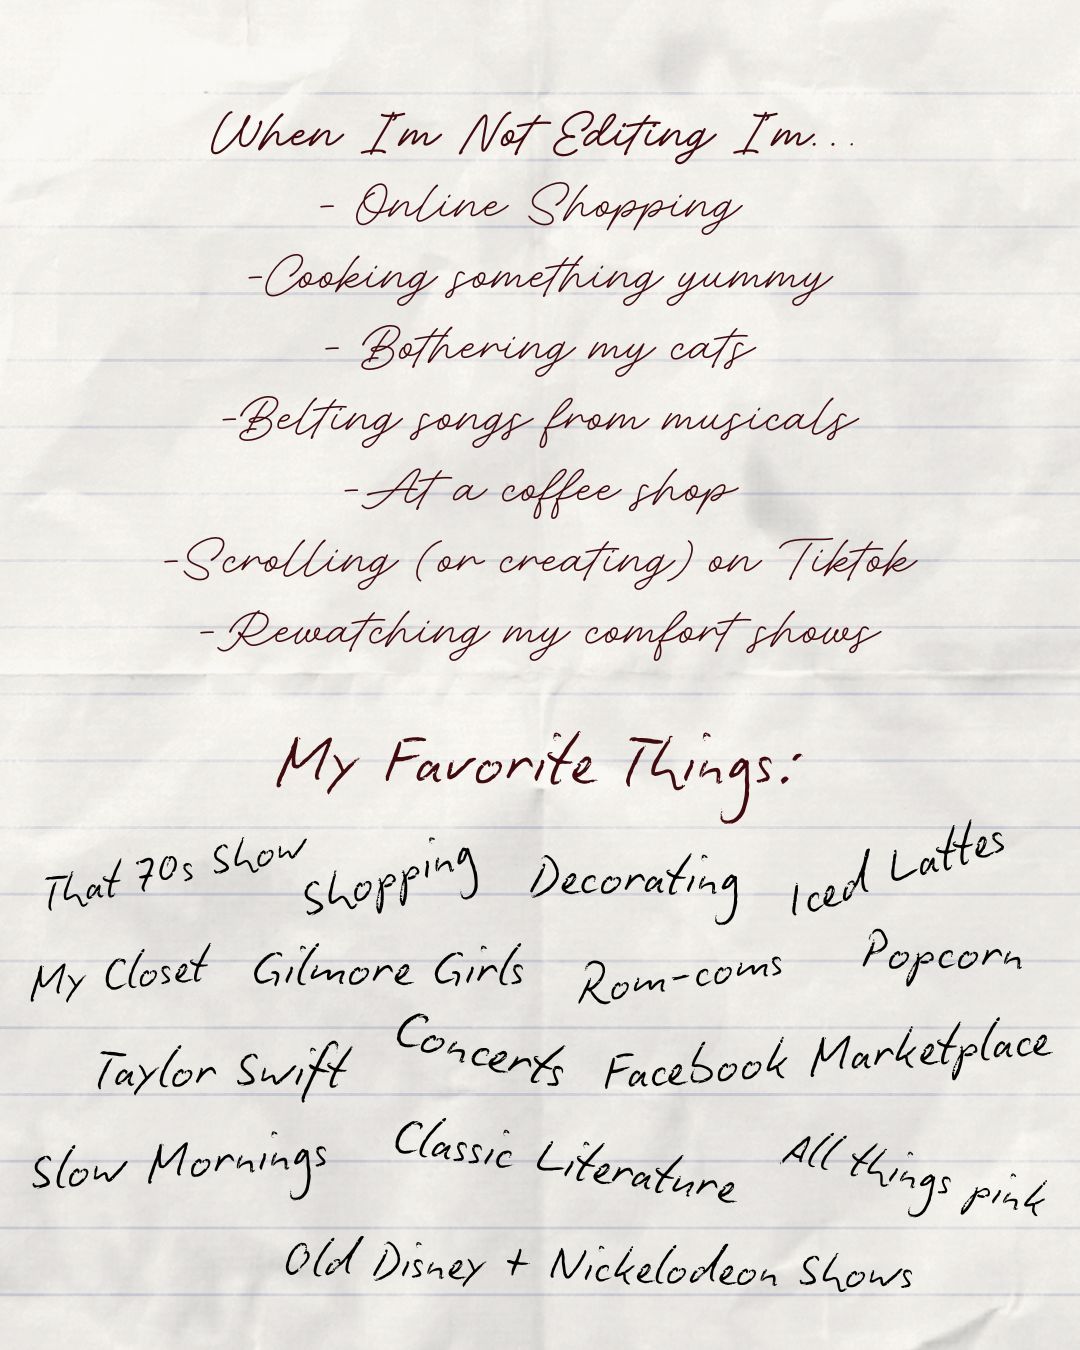 When I'm Not Editing I'm...
- Online Shopping
-Cooking something yummy
- Bothering my cats
-Belting songs from musicals
-At a coffee shop
-Scrolling (or creating) on Tiktok
-Rewatching my comfort shows
My Favorite Things:
That 70s Show Shopping Decorating Iced Lattes
My Closet Gilmore Girls Rom-coms Popcorn
Taylor Swift Concerts Facebook Marketplace
Slow Mornings Classic Literature All things pink
Old Disney + Nickelodeon Shows